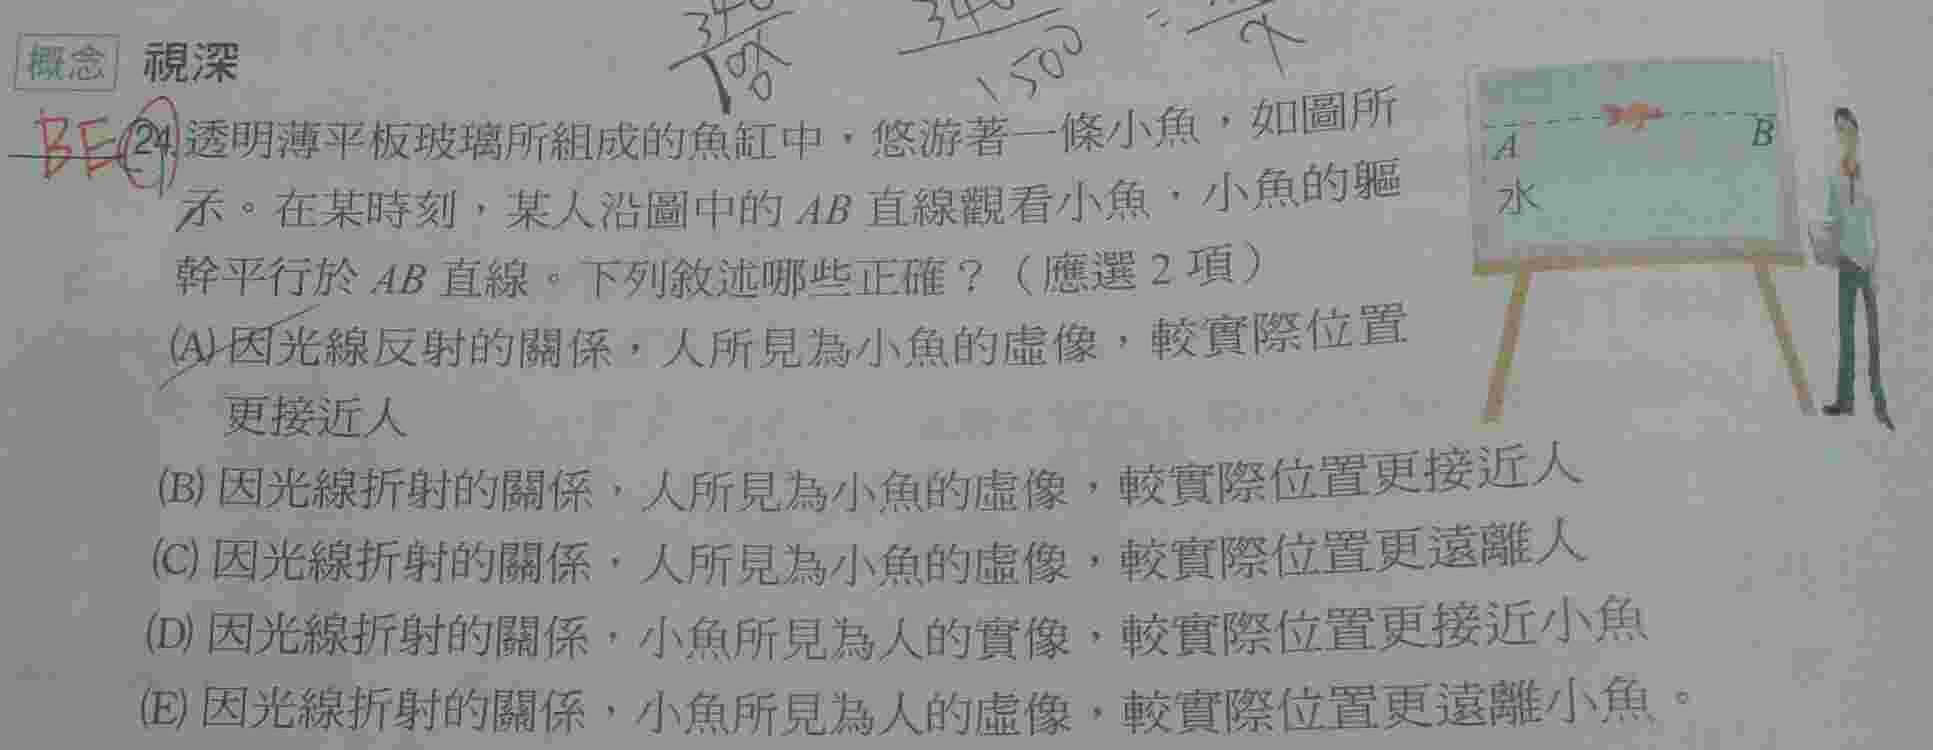 概念 視深
BE 24.透明薄平板玻璃所組成的魚缸中，悠游著一條小魚，如圖所
示。在某時刻，某人沿圖中的 AB 直線觀看小魚，小魚的軀
幹平行於 AB 直線。下列敘述哪些正確？（應選 2 項）
(A) 因光線反射的關係，人所見為小魚的虛像，較實際位置
更接近人
(B) 因光線折射的關係，人所見為小魚的虛像，較實際位置更接近人
(C) 因光線折射的關係，人所見為小魚的虛像，較實際位置更遠離人
(D) 因光線折射的關係，小魚所見為人的實像，較實際位置更接近小魚
(E) 因光線折射的關係，小魚所見為人的虛像，較實際位置更遠離小魚。
A
B
水
340
1500